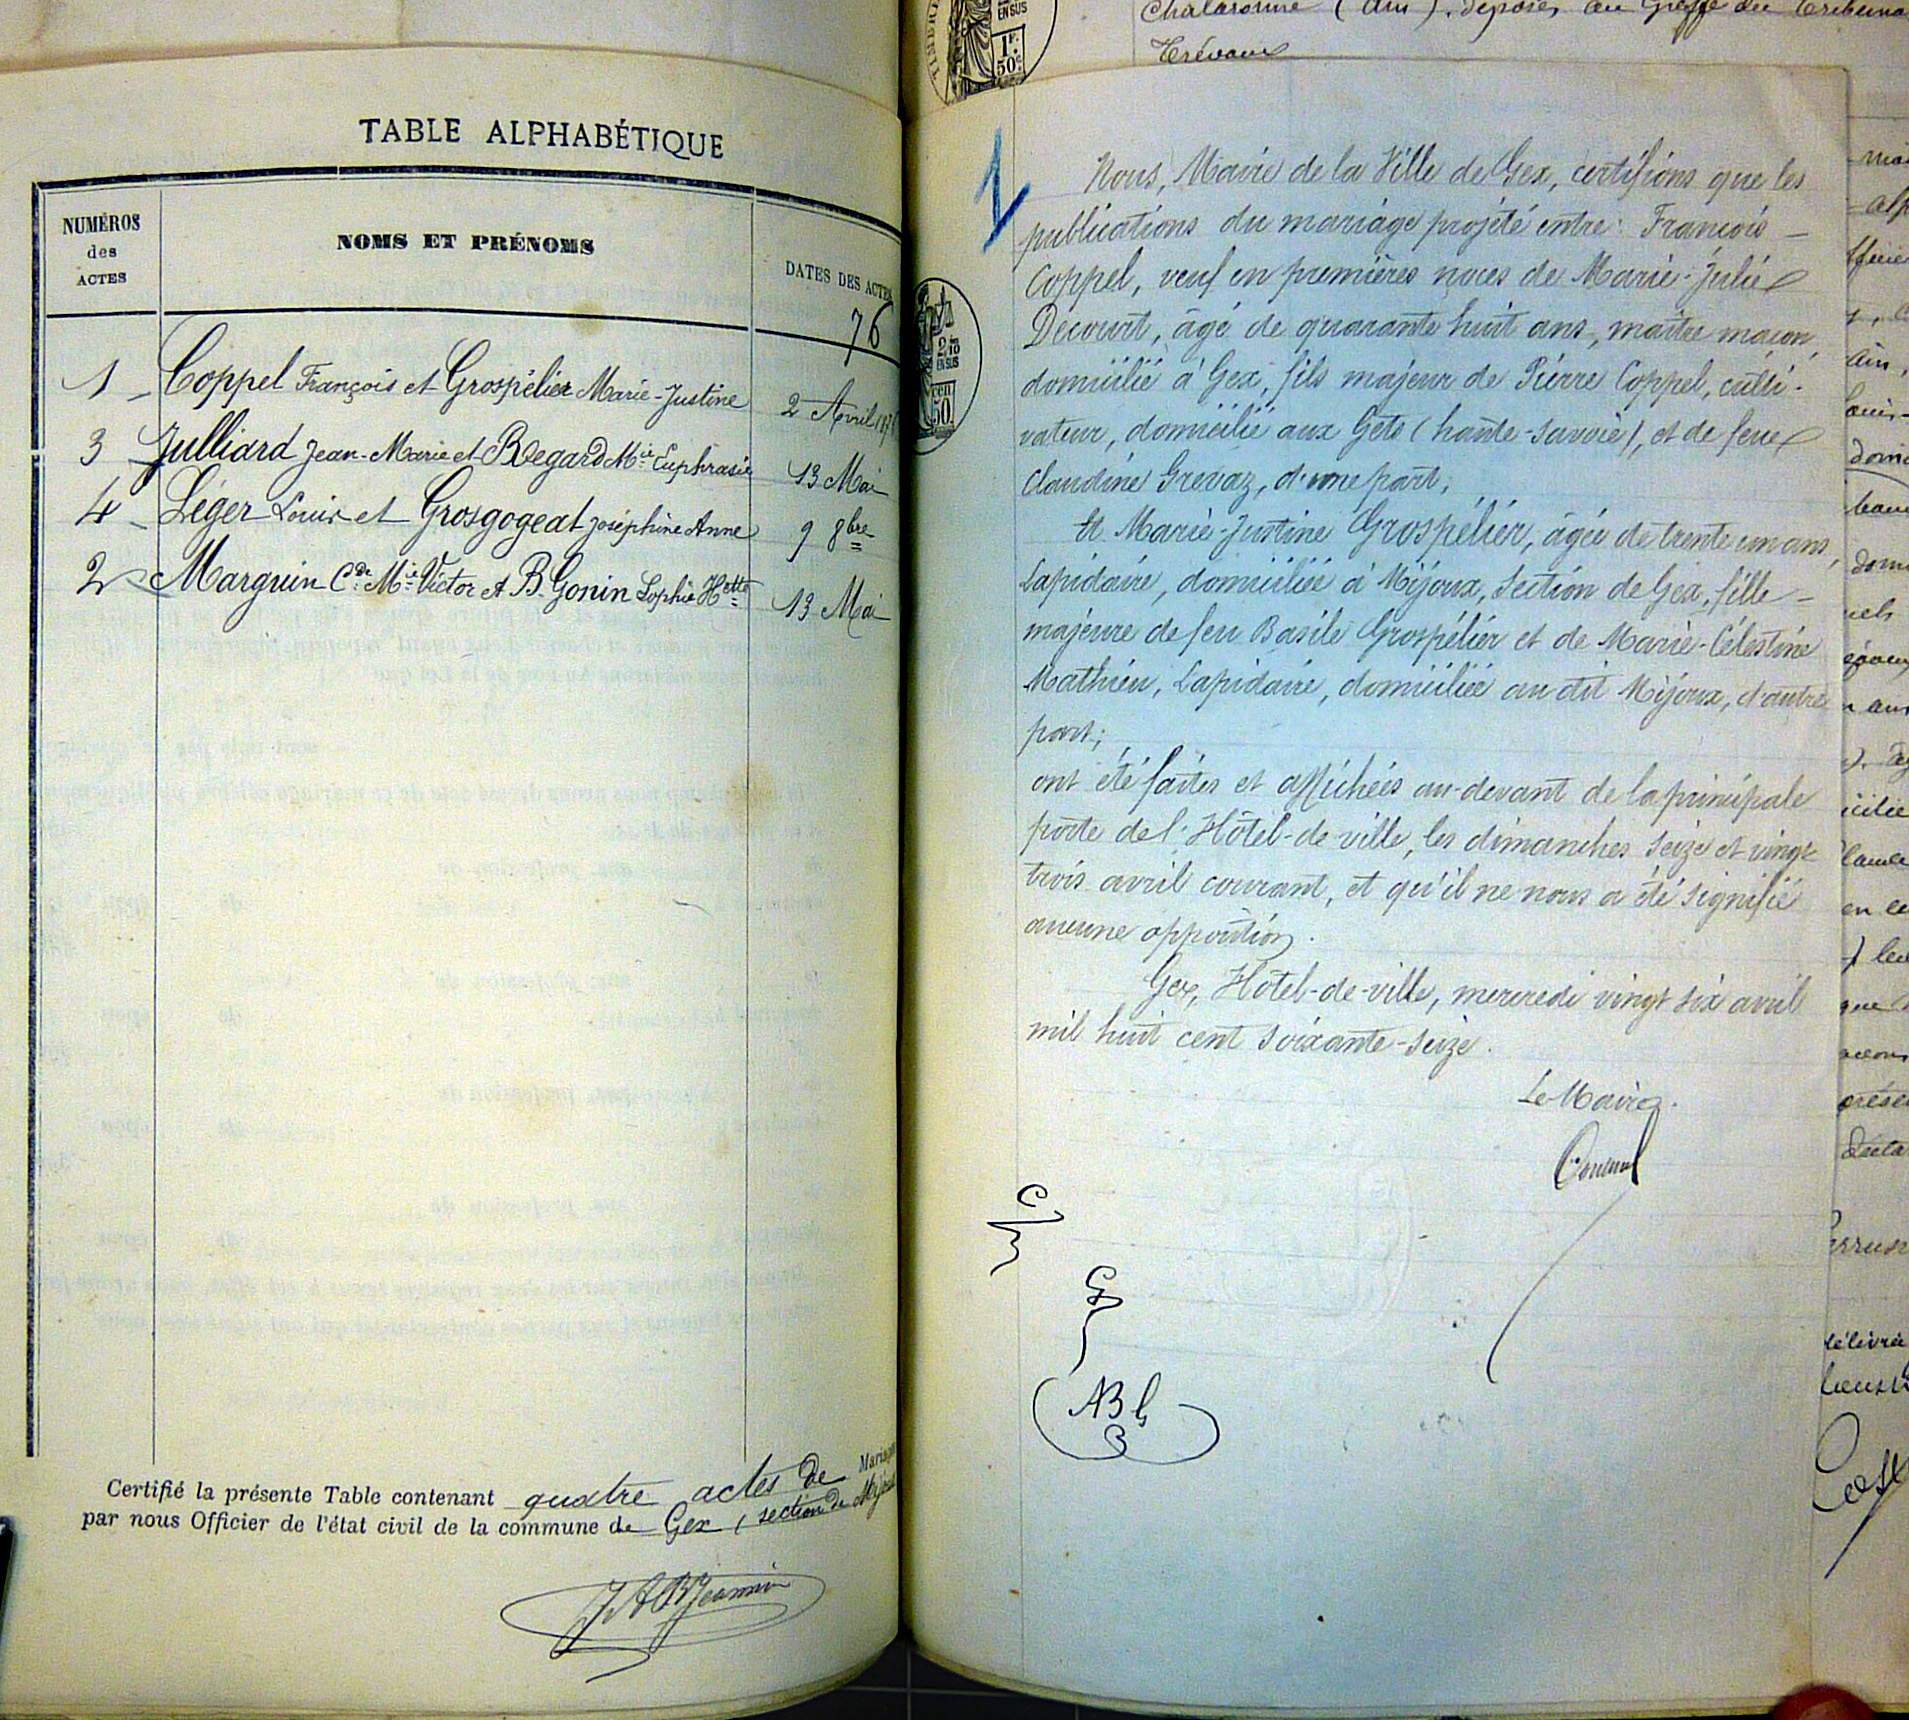 TABLE ALPHABÉTIQUE
NUMÉROS
des
ACTES
NOMS ET PRÉNOMS
DATES DES ACTES
76
1 - Coppel François et Grospélier Marie-Justine 2 Avril
3 Julliard Jean-Marie et Regard Mie Euphrasie 13 Mai
4 - Léger Louis et Grosgogeat Joséphine Anne 9 8bre
2 Marguin Cde Mie Victor et B. Gonin Sophie Htte 13 Mai
Certifié la présente Table contenant quatre actes de
par nous Officier de l'état civil de la commune de Gex (section de Mijoux
Chalaronne (Ain), déposés au Greffe du Tribuna
Trévoux
TIMBRE
EN SUS
1F.
50c
1
2/10
EN SUS
50
Nous, Maire de la Ville de Gex, certifions que les
publications du mariage projeté entre: François -
Coppel, veuf en premières noces de Marie-Julie
Decourt, âgé de quarante huit ans, maître maçon,
domicilié à Gex, fils majeur de Pierre Coppel, culti-
vateur, domicilié aux Gets (haute-Savoie), et de feue
Claudine Grevaz, d'une part;
Et Marie-Justine Grospélier, âgée de trente un ans,
Lapidaire, domiciliée à Mijoux, Section de Gex, fille -
majeure de feu Basile Grospélier et de Marie-Célestine
Mathieu, Lapidaire, domiciliée au dit Mijoux, d'autre
part;
ont été faites et affichées au-devant de la principale
porte de l'Hôtel-de-ville, les dimanches seize et vingt
trois avril courant, et qu'il ne nous a été signifié
aucune opposition.
Gex, Hôtel-de-ville, mercredi vingt six avril
mil huit cent soixante-seize.
Le Maire.
ABG